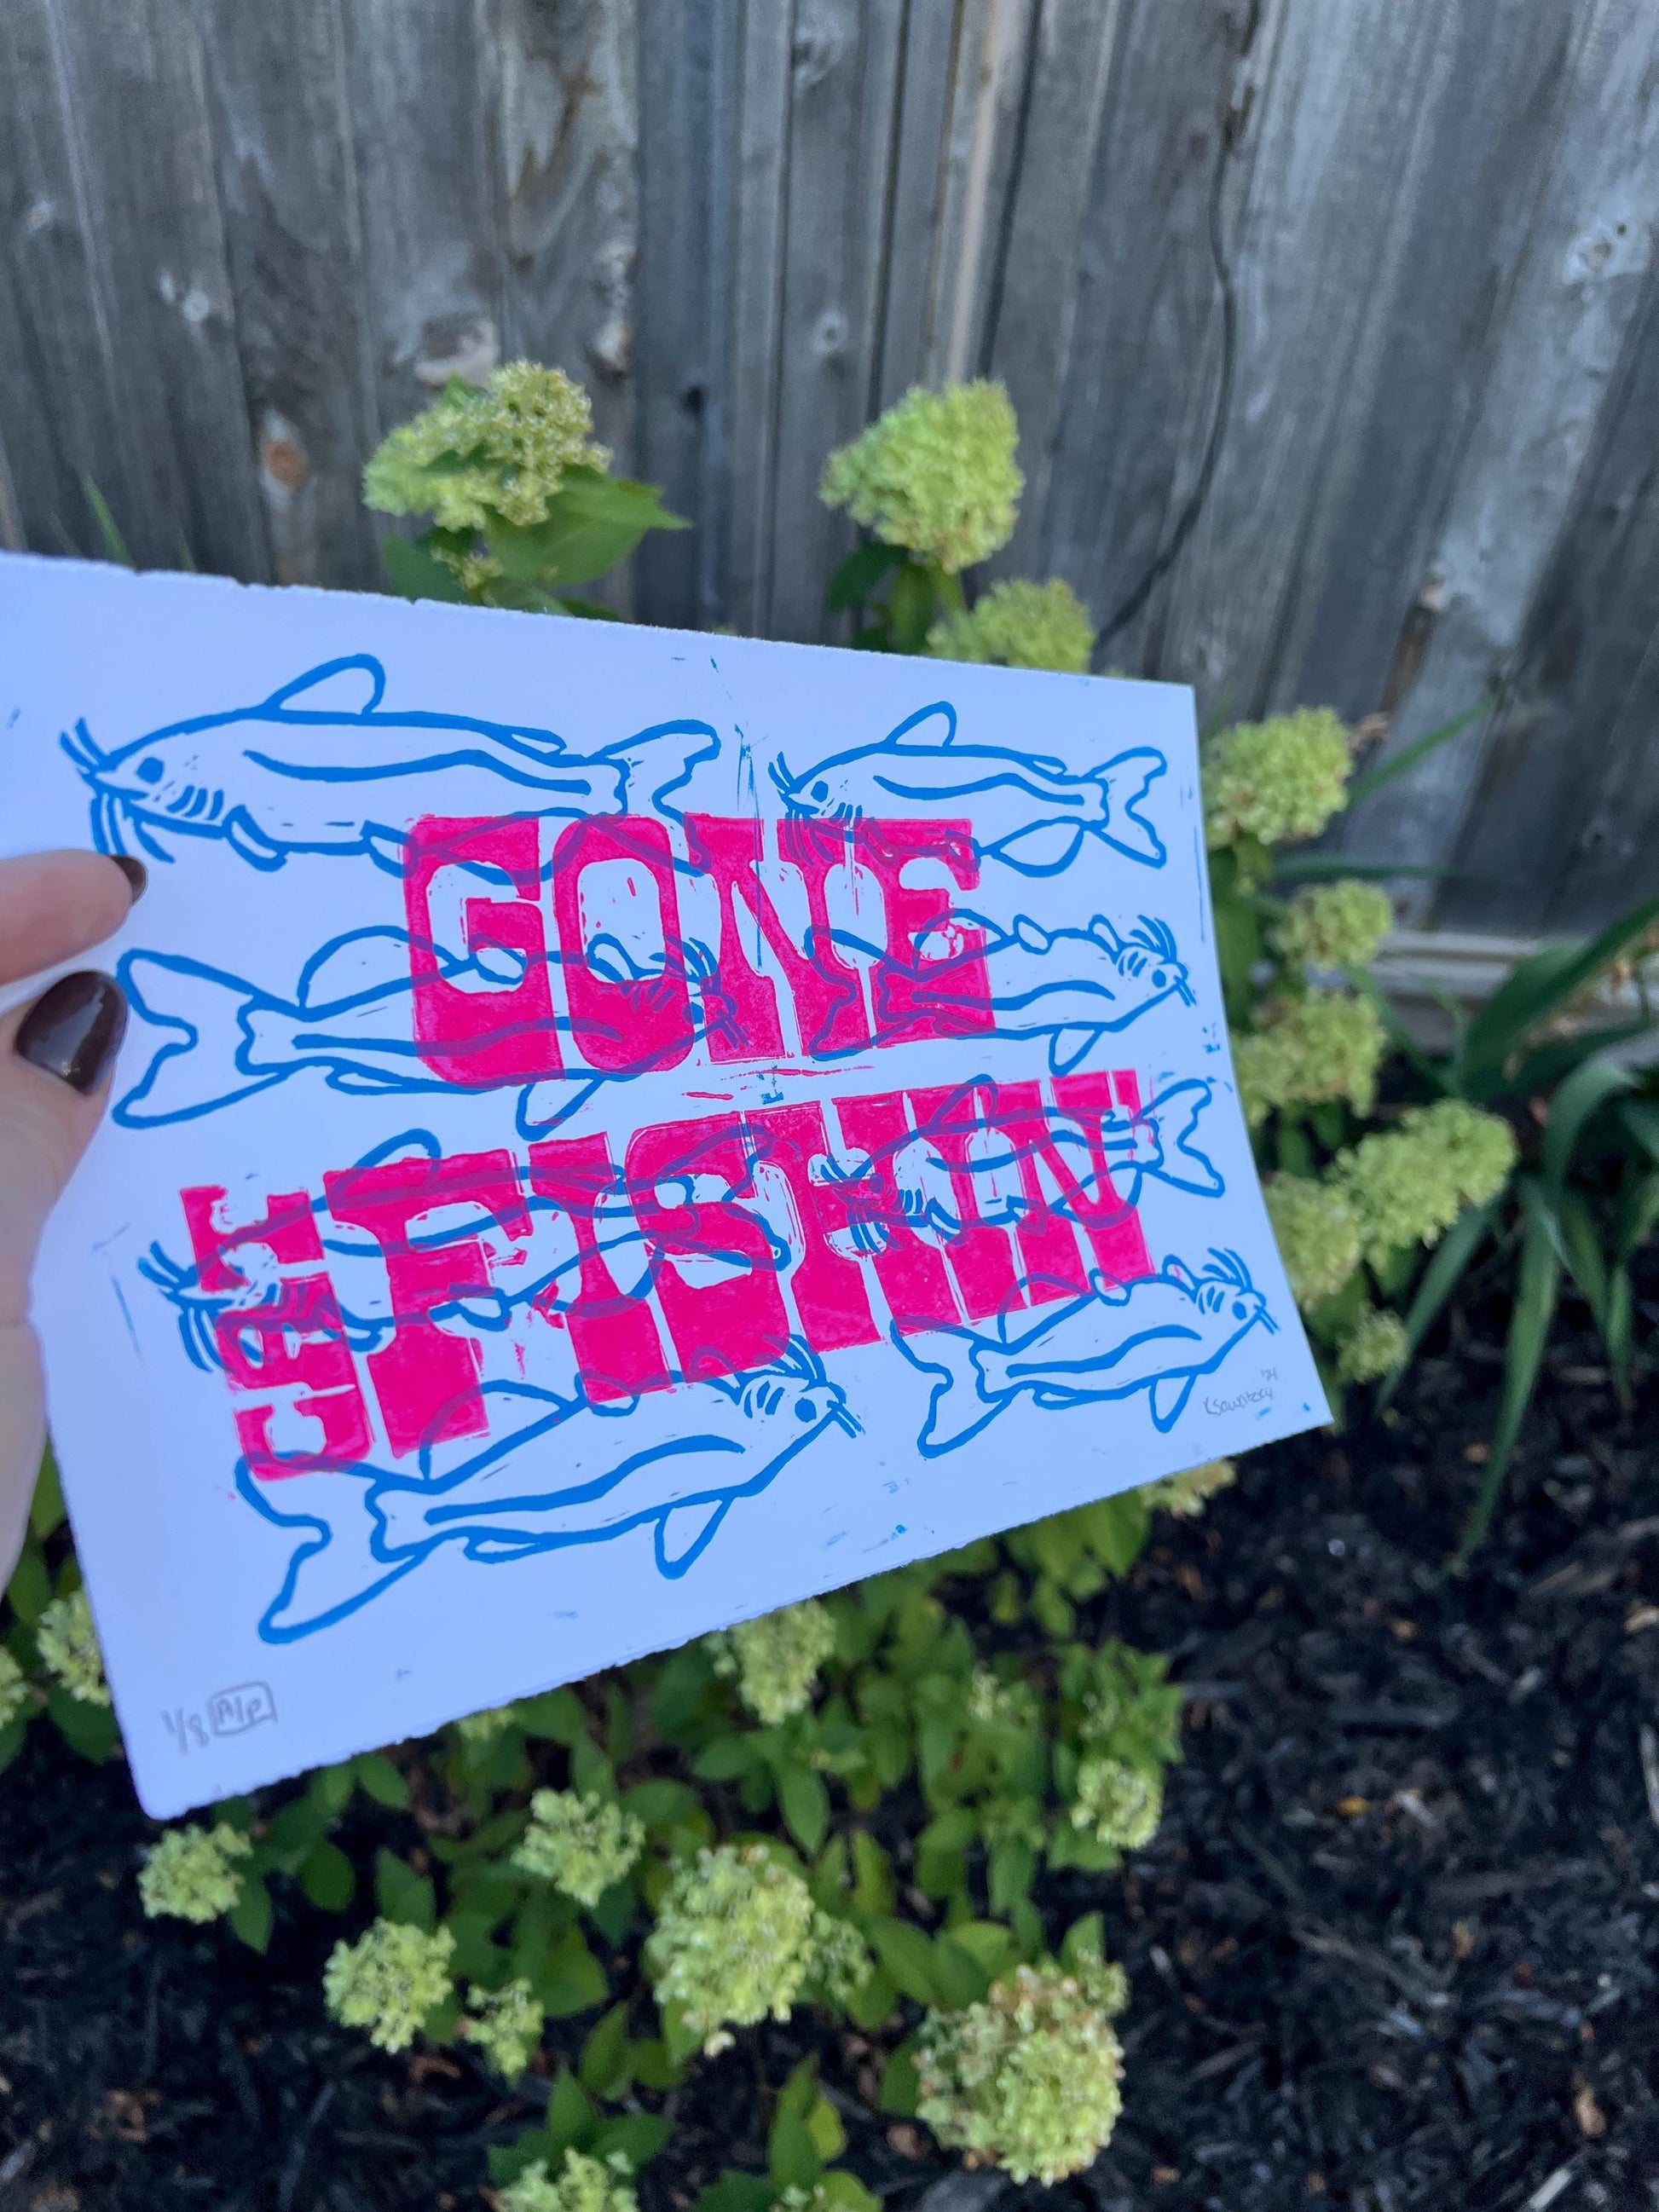 GONE
CAT
FISHIN'
1/8 A/P
'24